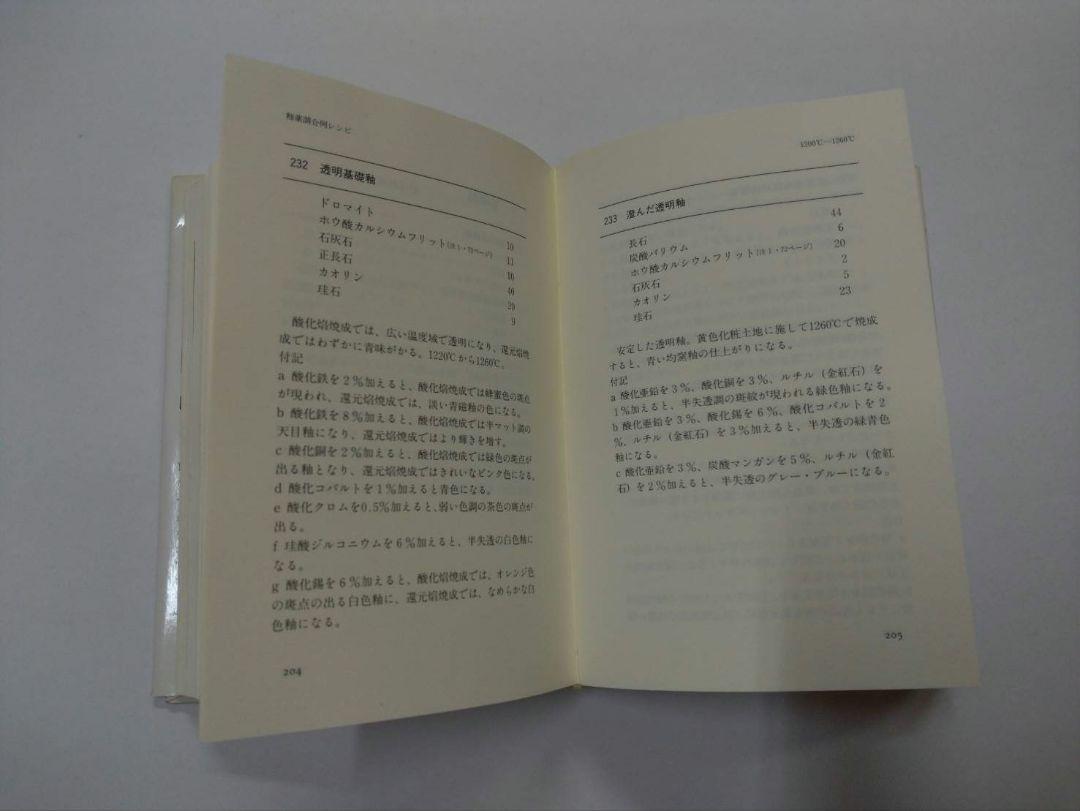 釉薬調合例レシピ
232 透明基礎釉
ドロマイト 10
ホウ酸カルシウムフリット(注1・72ページ) 11
石灰石 10
正長石 40
カオリン 20
珪石 9
酸化焰焼成では、広い温度域で透明になり、還元焰焼
成ではわずかに青味がかる。1220℃から1260℃。
付記
a 酸化鉄を2％加えると、酸化焰焼成では蜂蜜色の斑点
が現われ、還元焰焼成では、淡い青磁釉の色になる。
b 酸化鉄を8％加えると、酸化焼成では半マット調の
天目釉になり、還元焰焼成ではより輝きを増す。
c 酸化銅を2％加えると、酸化焰焼成では緑色の斑点が
出る釉となり、還元焰焼成ではきれいなピンク色になる。
d 酸化コバルトを1％加えると青色になる。
e 酸化クロムを0.5％加えると、弱い色調の茶色の斑点が
出る。
f 珪酸ジルコニウムを6％加えると、半失透の白色釉に
なる。
g 酸化錫を6％加えると、酸化焰焼成では、オレンジ色
の斑点の出る白色釉に、還元焰焼成では、なめらかな白
色釉になる。
204
1200℃—1260℃
233 澄んだ透明釉
長石 44
炭酸バリウム 6
ホウ酸カルシウムフリット(注1・72ページ) 20
石灰石 2
カオリン 5
珪石 23
安定した透明釉。黄色化粧土地に施して1260℃で焼成
すると、青い均窯釉の仕上がりになる。
付記
a 酸化亜鉛を3％、酸化銅を3％、ルチル（金紅石）を
1％加えると、半失透調の斑紋が現われる緑色釉になる。
b 酸化亜鉛を3％、酸化錫を6％、酸化コバルトを2
％、ルチル（金紅石）を3％加えると、半失透の緑青色
釉になる。
c 酸化亜鉛を3％、炭酸マンガンを5％、ルチル（金紅
石）を2％加えると、半失透のグレー・ブルーになる。
205